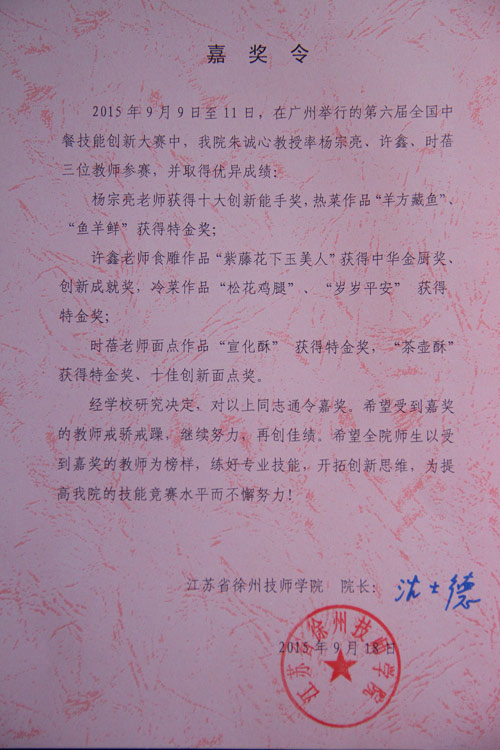 嘉奖令
2015年9月9日至11日，在广州举行的第六届全国中
餐技能创新大赛中，我院朱诚心教授率杨宗亮、许鑫、时蓓
三位教师参赛，并取得优异成绩：
杨宗亮老师获得十大创新能手奖，热菜作品“羊方藏鱼”、
“鱼羊鲜”获得特金奖；
许鑫老师食雕作品“紫藤花下玉美人”获得中华金厨奖、
创新成就奖，冷菜作品“松花鸡腿”、“岁岁平安” 获得
特金奖；
时蓓老师面点作品“宣化酥” 获得特金奖，“茶壶酥”
获得特金奖、十佳创新面点奖。
经学校研究决定，对以上同志通令嘉奖。希望受到嘉奖
的教师戒骄戒躁，继续努力，再创佳绩。希望全院师生以受
到嘉奖的教师为榜样，练好专业技能，开拓创新思维，为提
高我院的技能竞赛水平而不懈努力！
江苏省徐州技师学院 院长：沈士德
2015年9月18日
江苏省徐州技师学院